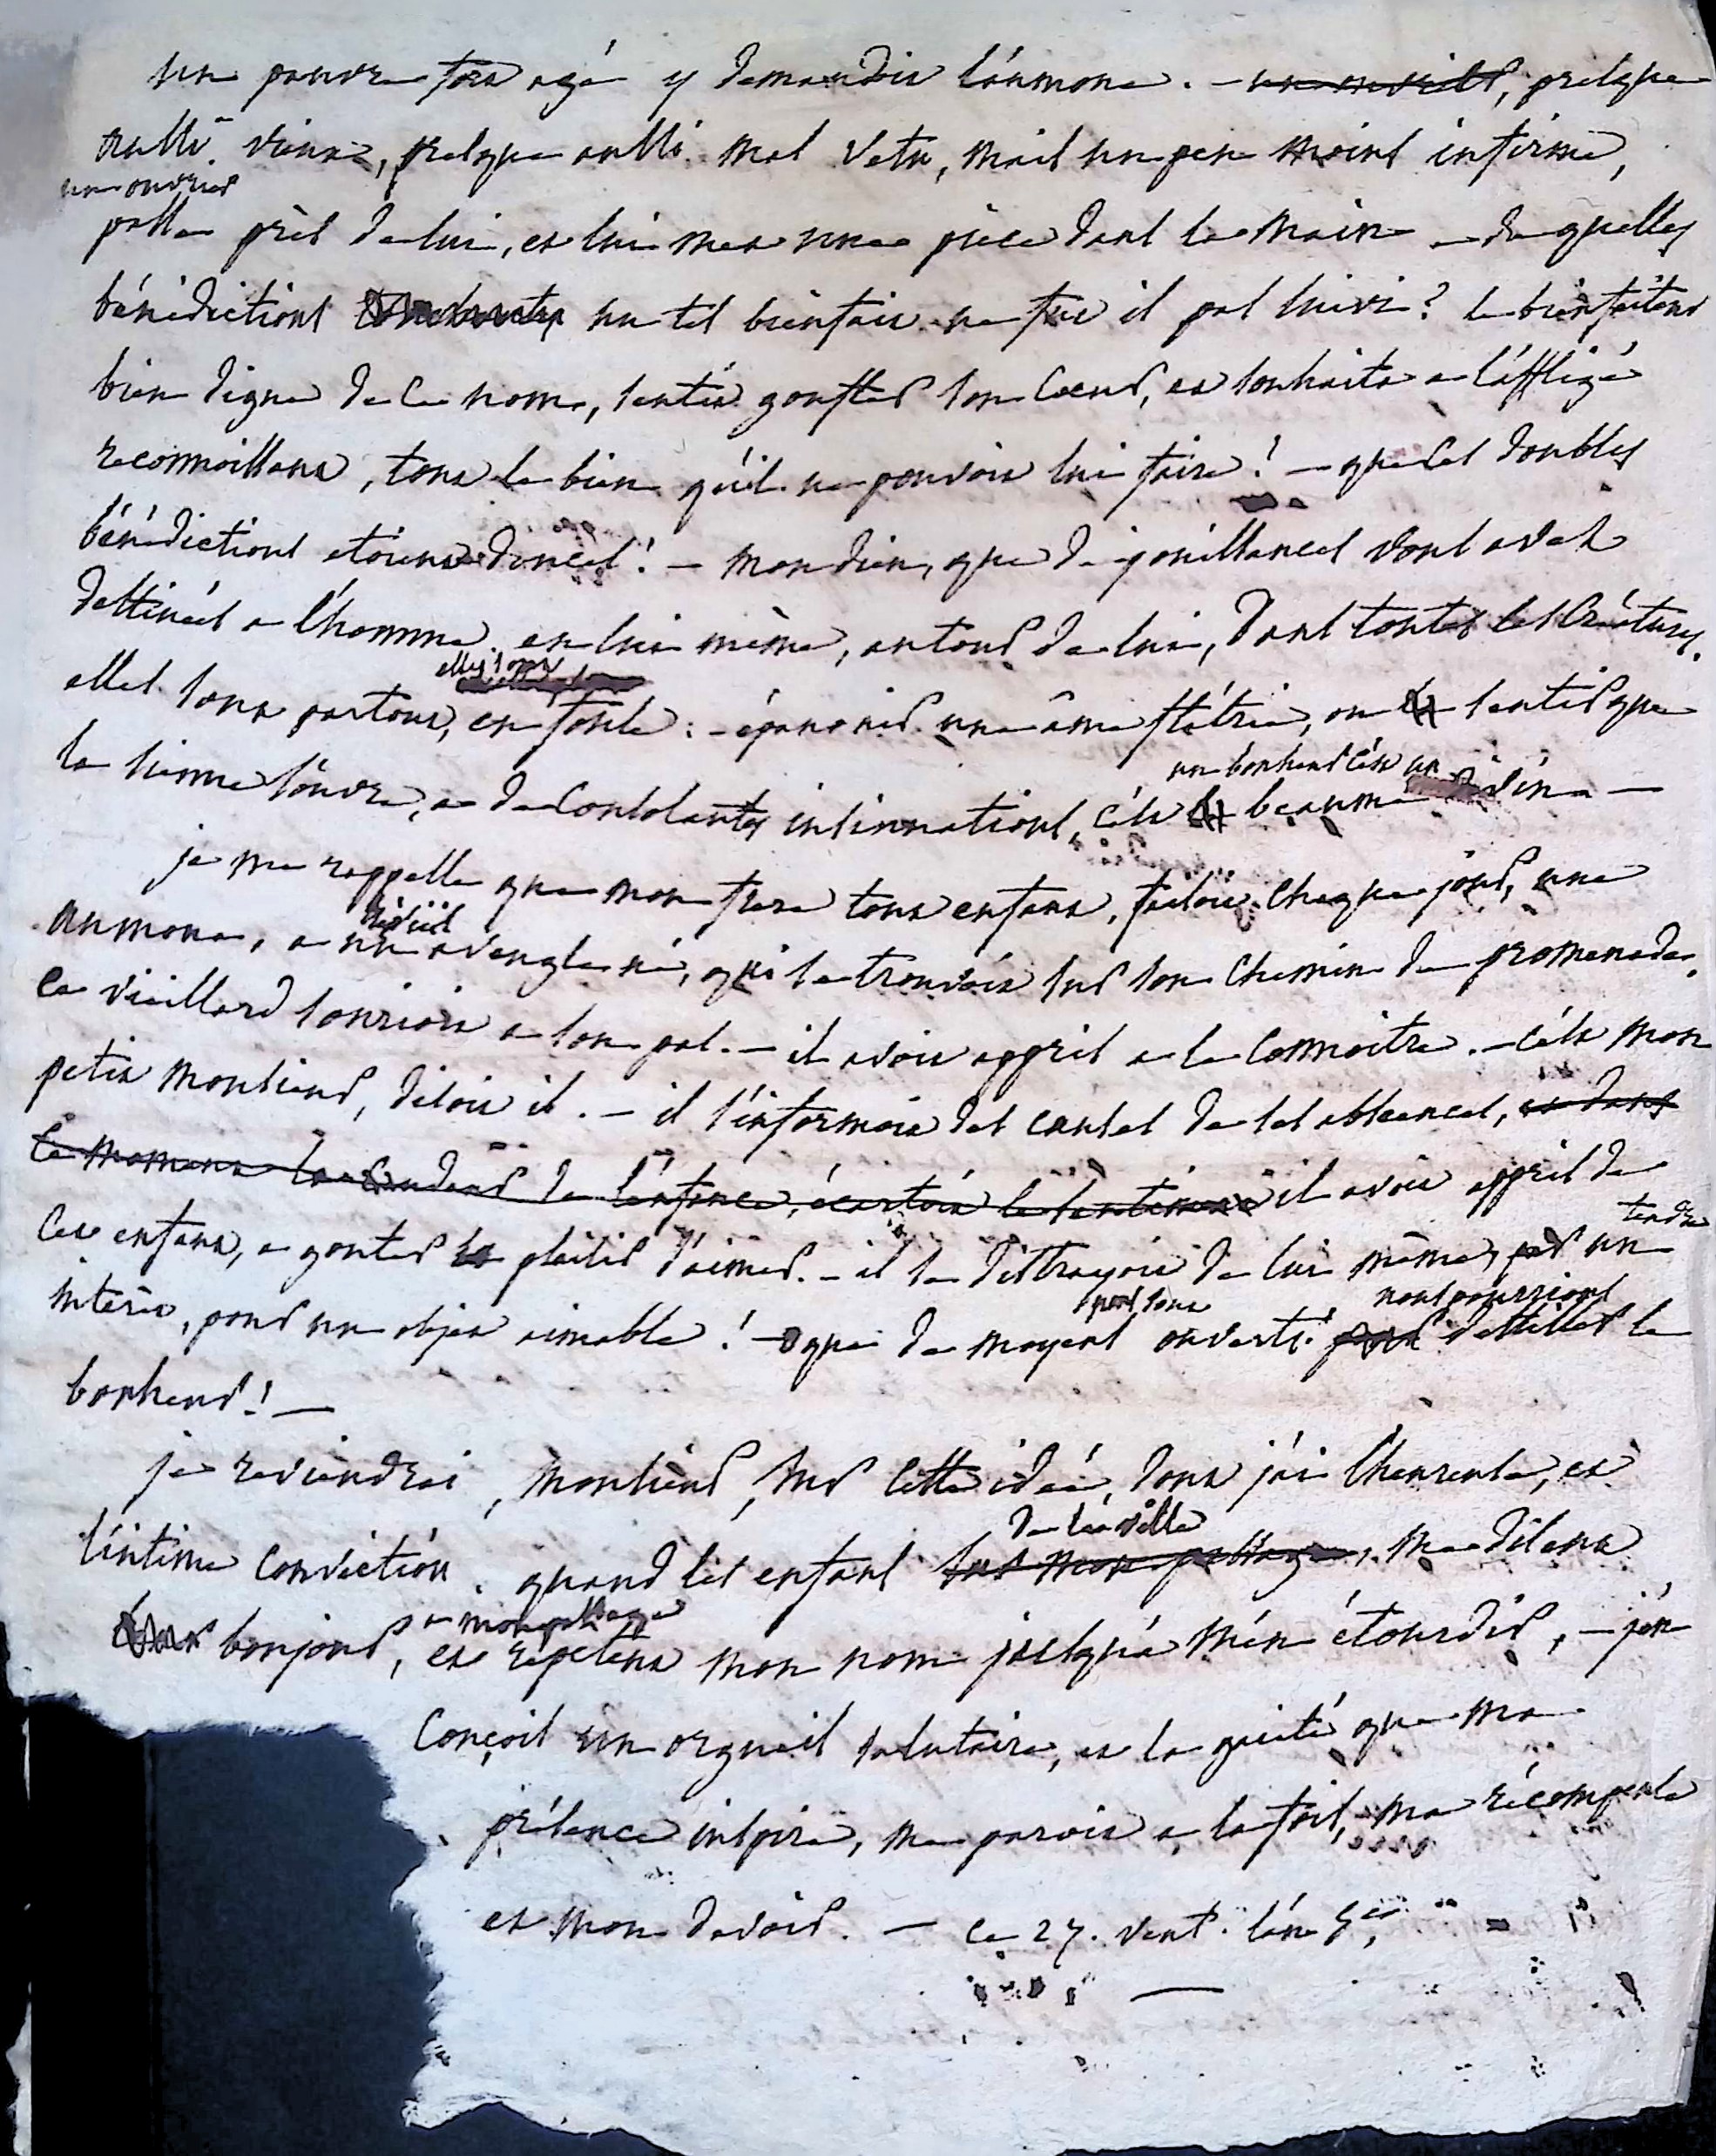 un pauvre fort agé y demandoit l'áumone. - un vieill, presque
aussi vieux, presque aussi mal vetu, mais un peu moins infirme,
un ouvrier
passe près de lui, et lui met une pièce dans la main - de quelles
bénédictions un tel bienfait ne fut il pas suivi? le bienfaiteur
bien digne de ce nom, sentit gonfler son coeur, et souhaita a l'áffligé
reconnoissant, tout le bien qu'il ne pouvoit lui faire! - que ces doubles
bénédictions etoient douces! - mon dieu, que de jouissances vous avez
destinées a l'homme, en lui même, autour de lui, dans toutes les créatures.
elles sont
elles sont partout, en foule: - épanouir une âme flétrie, ou sentir que
un bonheur c'ést un
la sienne s'óuvre, a de consolantes insinuations, c'ést beaume divin -
je me rappelle que mon frere tout enfant, faisoit chaque jour, une
vieil
aumone, a un aveugle né, qui se trouvoit sur son chemin de promenade.
ce vieillard sourioit a son pas. - il avoit appris a le connoitre. - c'ést mon
petit monsieur, disoit il. - il s'informoit des causes de ses absences, et dans
ce moment la candeur de l'énfance, écartoit le sentiment il avoit appris de
tendre
cet enfant, a gouter le plaisir d'áimer. - il se distrayoit de lui même, par un
par tout nous pourrions
interêt, pour un objet aimable! - que de moyens ouverts! pour destiller le
bonheur! -
je reviendrai, monsieur, sur cette idée, dont j'ái l'heureuse, et
de la ville
l'íntime conviction. quand les enfans sur mon passage, me disent
a mon passage
bonjour, et repetent mon nom jusqu'á m'én étourdir, - j'én
conçois un orgueil salutaire, et la gaieté que ma
présence inspire, me paroit a la fois, ma récompense
et mon devoir. - ce 27. vent. l'án